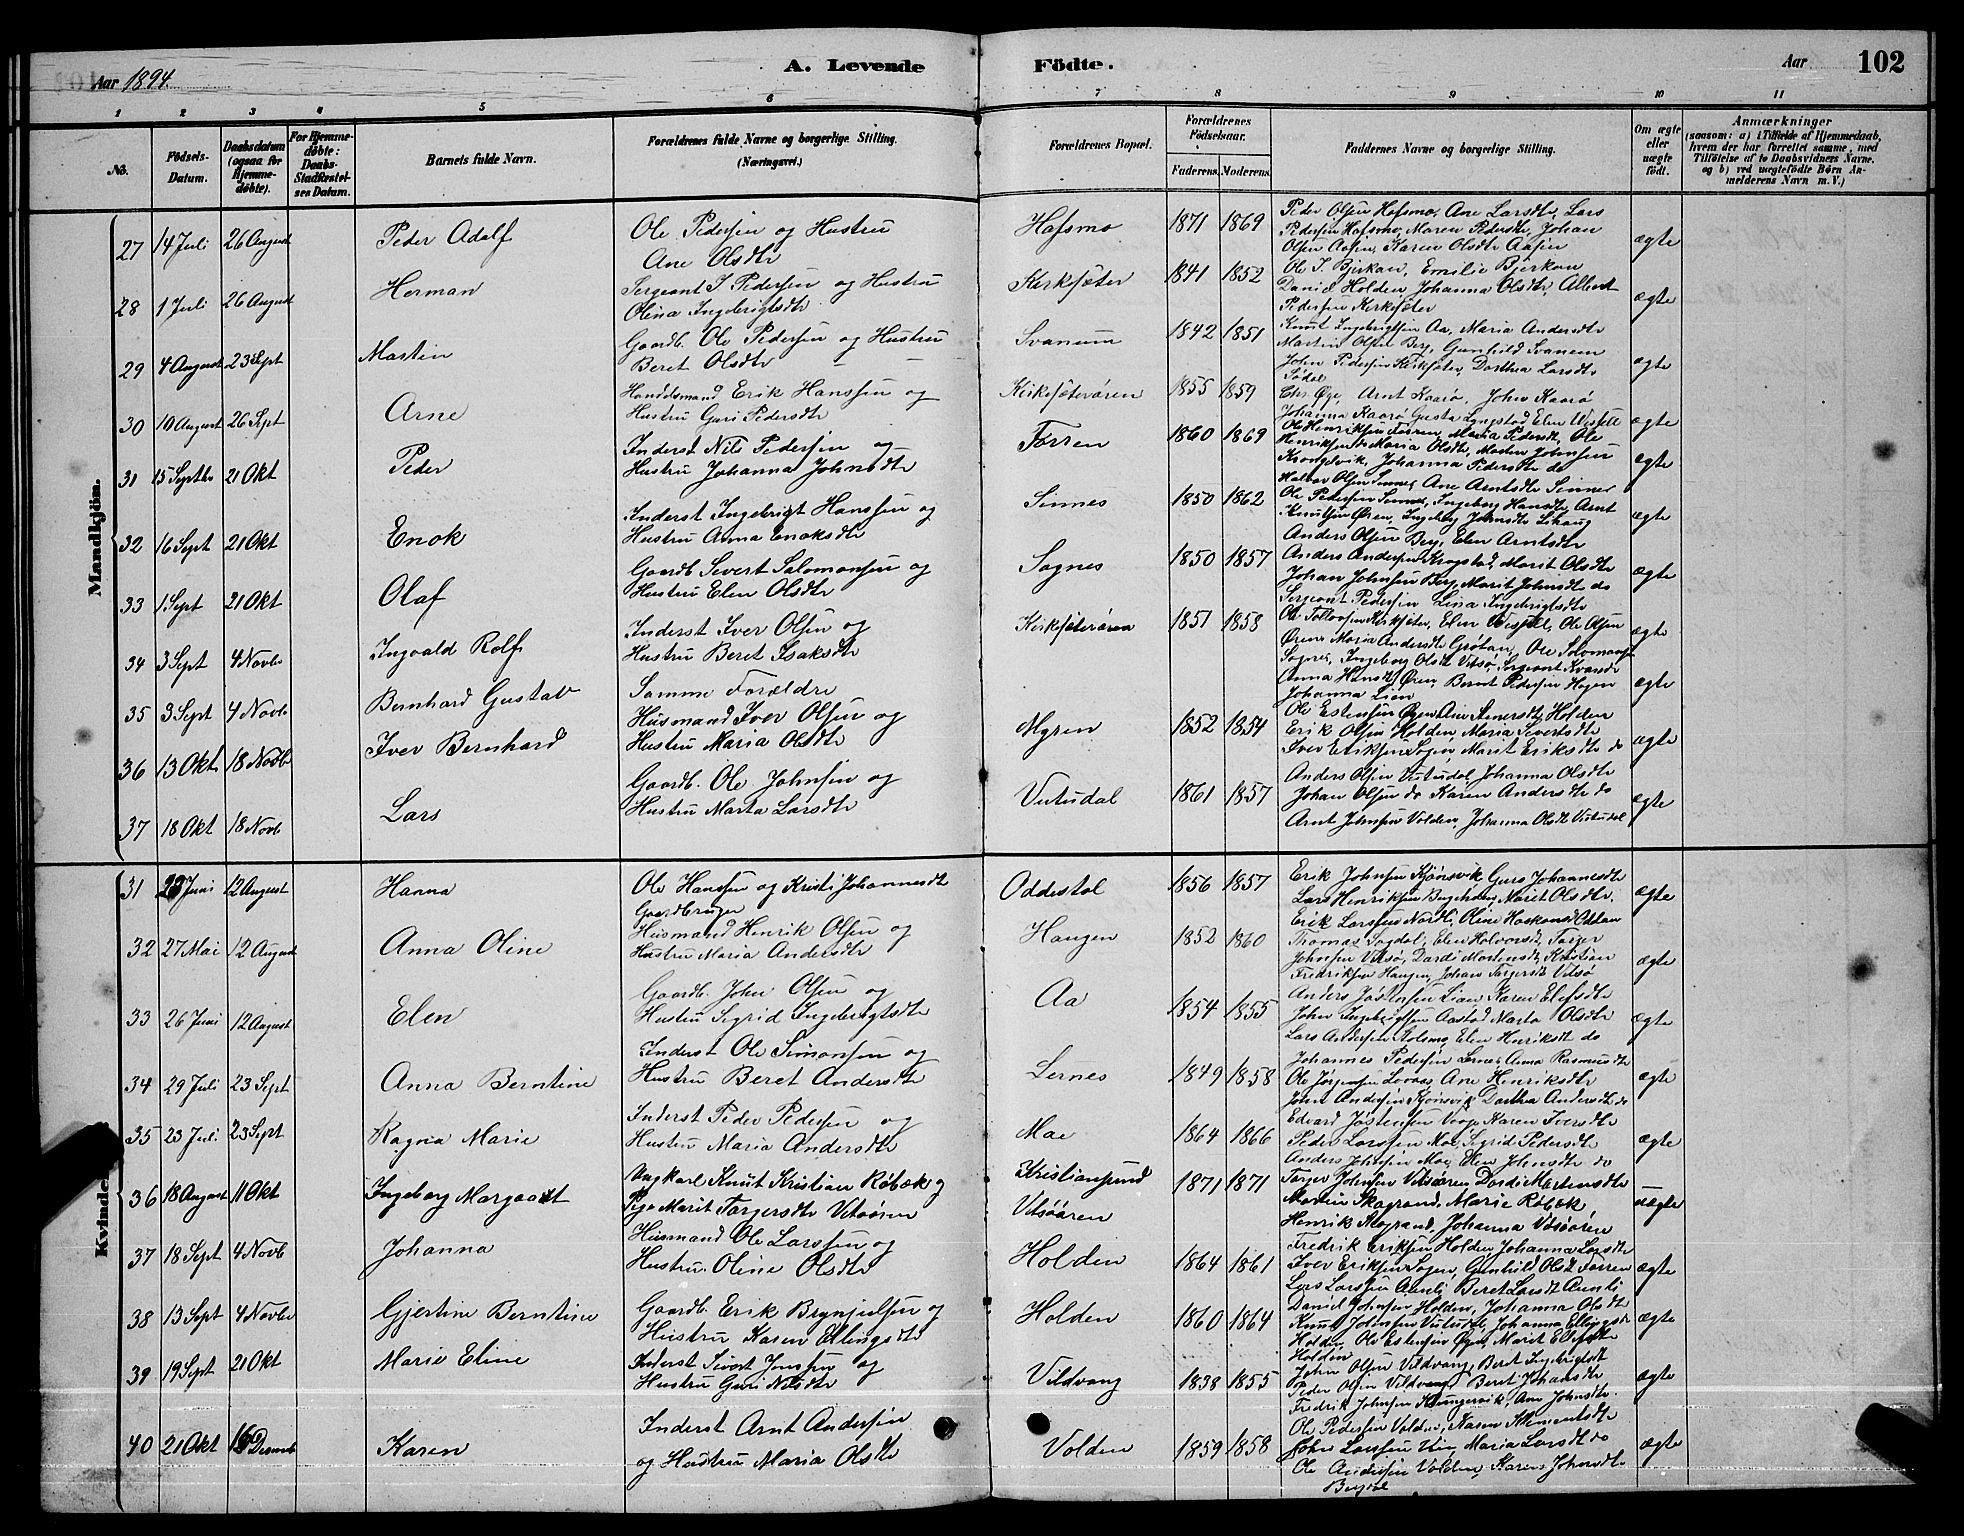 Aar 1894. A. Levende Födte. Aar 102
1 2 3 4 5 6 7 8 9 10 11
No. Födsels-Datum. Daabsdatum (ogsaa for Hjemme-döbte). For Hjemme-döbte: Daabs-Stadfæstel-ses Datum. Barnets fulde Navn. Forældrenes fulde Navne og borgerlige Stilling. (Næringsvei.) Forældrenes Bopæl. Forældrenes Födselsaar. Faderens. Moderens. Faddernes Navne og borgerlige Stilling. Om ægte eller uægte født. Anmærkninger (saasom: a) i Tilfælde af Hjemmedaab, hvem der har forrettet samme, med Tilföielse af to Daabsvidners Navne. og b) ved uægtefödte Börn An-melderens Navn m. V.)
Mandkjön.
27 14 Juli 26 August Peder Adolf Ole Pedersen og Hustru Ane Olsdtr Hofsmo 1871 1869 Peder Olsen Hofsmo, Ane Larsdtr, Lars Pedersen Hofsmo, Maren Pedersdtr, Johan Olsen Aasen, Karen Olsdtr Aasen ægte
28 1 Juli 26 August Herman Sergeant I Pedersen og Hustru Olina Ingebrigtsdtr Kirksæter 1841 1852 Ole I. Bjerkan, Emilie Bjerkan Daniel Holden, Johanna Olsdtr, Albert Pedersen Kirksæter ægte
29 4 August 23 Sept Mastin Gaardb. Ole Pedersen og Hustru Beret Olsdtr Svanum 1842 1851 Knut Ingebrigtsen Aa, Maria Andersdtr Martin Olsen Berg, Gunhild Svanem John Pedersen Kirksæter, Dorthea Larsdtr Södal ægte
30 10 August 26 Sept Arne Handelsmand Erik Hanssen og Hustru Guri Pedersdtr Kirksæterören 1855 1859 Chr. Øye, Arnt Kaarø, John Kaarø Johanna Kaarø Gusta Lyngstad Elen Wessell ægte
31 15 Septbr 21 Okt Peder Inderst Nils Pedersen og Hustru Johanna Johnsdtr Torren 1860 1869 Ole Henriksen Torren, Maria Pedersdt, Ole Henriksen do Maria Olsdtr, Morten Johnsen Krongelvik, Johanna Pedersdtr do ægte
32 16 Sept 21 Okt Enok Inderst Ingebrigt Hanssen og Hustru Anna Enoksdtr Sinnes 1850 1862 Halvor Olsen Sinnes, Ane Arntsdtr Sinnes Ole Pedersen Sinnes, Ingeborg Hansdtr, Arnt Knutsen Øren, Ingebrg Johnsdtr Lihaug ægte
33 1 Sept 21 Okt Olaf Gaardb Sivert Salomonsen og Hustru Elen Olsdtr Sognes 1850 1857 Anders Olsen Berg, Elen Arntsdtr Anders Andersen Krogstad, Marit Olsdtr Johan Johnsen Berg, Marit Johnsdtr do ægte
34 3 Sept 4 Novbr Ingvald Rolf Inderst Iver Olsen og Hustru Beret Isaksdtr Kirksæterören 1851 1858 Sergeant Pedersen Lina Ingebrigtsdtr Ole Tollevsen Kirksæter, Elen Wessel, Ole Olsen Ören, Maria Andersdtr Grötan, Ole Salomonsen ægte
35 3 Sept 4 Novb Bernhard Gustav Samme Forældre Sognes, Ingeborg Olsdt Vitsø, Sergeant Kvande Anna Hansdtr Ören, Bernt Pedersen Hagen Johanna Lian ægte
36 13 Okt 18 Novbr Iver Bernhard Husmand Iver Olsen og Hustru Maria Olsdtr Myren 1852 1854 Ole Estensen Øyen Holden Erik Olsen Holden, Maria Sivertsdtr Iver Eriksen Sogen, Marit Eriksdtr do ægte
37 18 Okt 18 Novb Lars Gaardb. Ole Johnsen og Hustru Marta Larsdtr Vutudal 1861 1857 Anders Olsen Vutudal, Johanna Olsdtr Johan Olsen do Karen Andersdtr do Arnt Johnsen Volden, Johanna Olsdt Vutudal ægte
Kvinde
31 23 Juni 12 August Hanna Ole Hanssen og Kristi Johannesdt Gaardbruger Oddestol 1856 1857 Erik Johnsen Kjönsvik, Guro Johannesdtr Lars Henriksen, Marit Olsdtr, Erik Larssen Nordli, Oline Haakonsdt ægte
32 27 Mai 12 August Anna Oline Husmand Henrik Olsen og Hustru Maria Andersdtr Haugen 1852 1860 Thomas Sogdal, Elen Halvorsdt, Torger Johnsen Vitsø, Dordi Mortensdt, Kristian Fredriksen Haugen, Johan Torgersdt Vitsø ægte
33 26 Juni 12 August Elen Gaardb. John Olsen og Hustru Sigrid Ingebrigtsdtr Aa 1854 1855 Anders Jöstensen Lian, Karen Elefsdtr John Ingebrigtsen Aastad Marta Olsdtr Lars Andersen, Elen Henriksdt do ægte
34 29 Juli 23 Sept Anna Berntine Inderst Ole Simonsen og Hustru Beret Andersdtr Lernes 1849 1858 Johannes Pedersen Lernes, Anna Rasmusdtr Ole Jørgensen Lernes, Ane Henriksdtr John Andersen Kjönsvik, Dorthea Andersdtr do ægte
35 23 Juli 23 Sept Ragna Marie Inderst Peder Pedersen og Hustru Maria Andersdtr Moe 1864 1866 Edvard Jöstensen, Karen Iversdtr Peder Larssen Moe, Sigrid Pedersdtr Anders Johnsen Moe, Elen Johnsdtr do ægte
36 18 August 11 Okt Ingeborg Margaret Ungkarl Knut Kristian Röbæk og Pige Marit Torgersdtr Vitsøøren Kristiansund Vitsøøren 1871 1871 Torger Johnsen Vitsøøren Dordi Mortensdtr Martin Skogrand, Marie Röbæk, Henrik Skogrand, Johanna Vitsøören uægte
37 18 Sept 4 Novb Johanna Husmand Ole Larssen og Hustru Oline Olsdtr Holden 1864 1861 Fredrik Eriksen Holden, Johanna Larsdtr Iver Eriksen Sogen, Gunhild Olsdt Torren Lars Larssen Aunli, Beret Larsdt Aunli ægte
38 13 Sept 4 Novbr Gjertine Berntine Gaardb. Erik Brynjulsen og Hustru Karen Ellingsdtr Holden 1860 1864 Daniel Johnsen Holden, Johanna Olsdt Knut Johnsen Vutudal, Johanna Ellingsdt Holden, Ole Estensen Øyen, Marit Holden ægte
39 19 Sept 21 Okt Marie Eline Inderst Sivert Jonssen og Hustru Guri Nilsdtr Vildvang 1838 1855 John Olsen Vildvang, Beret Ingebrigtsdt Peder Olsen Vildvang, Beret Johansdtr Fredrik Johnsen Haugervik, Ane Johnsdtr ægte
40 21 Okt 16 Desemb Karen Inderst Arnt Andersen og Hustru Maria Olsdtr Volden 1859 1858 Ole Pedersen Volden, Karen Klementsdtr John Larssen, Maria Larsdt do Ole Andersen Volden, Karen Johnsdtr ægte